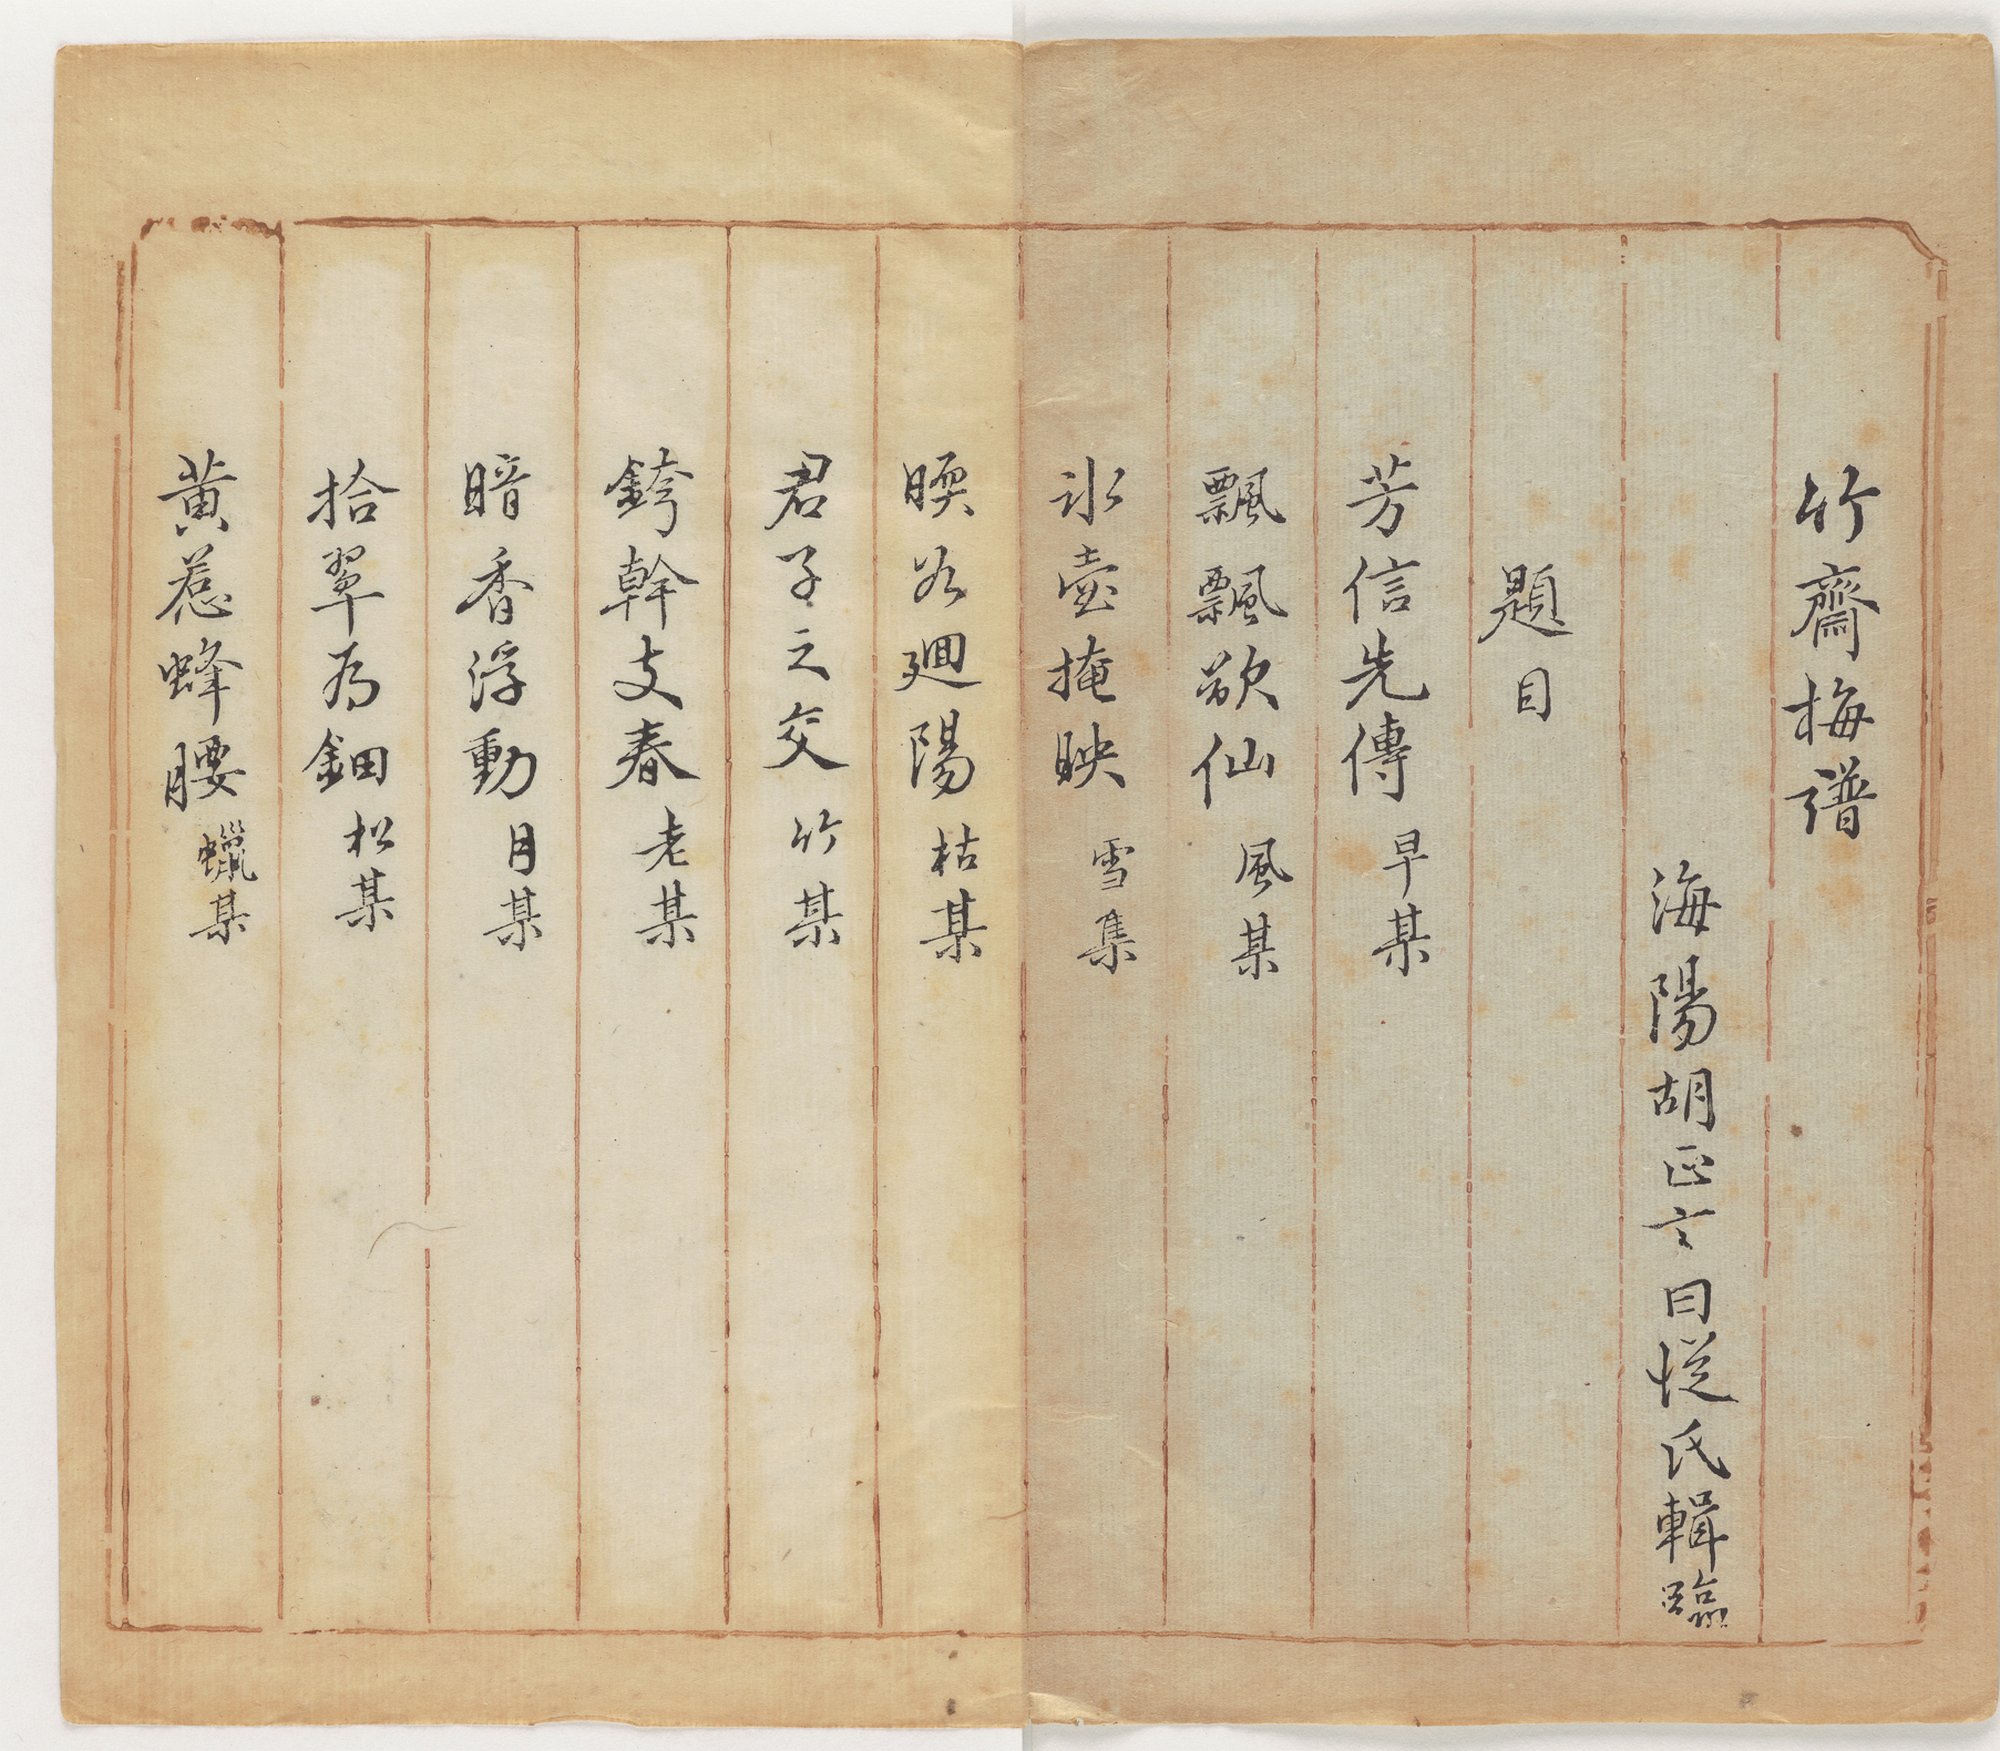 竹齋梅譜
海陽胡正言曰從氏輯臨
題目
芳信先傳 早某
飄飄欲仙 風某
氷壺掩映 雪集
暎谷廻陽 枯某
君子之交 竹某
銙幹支春 老某
暗香浮動 月某
拾翠为鈿 松某
黃惹蜂腰 蠟某